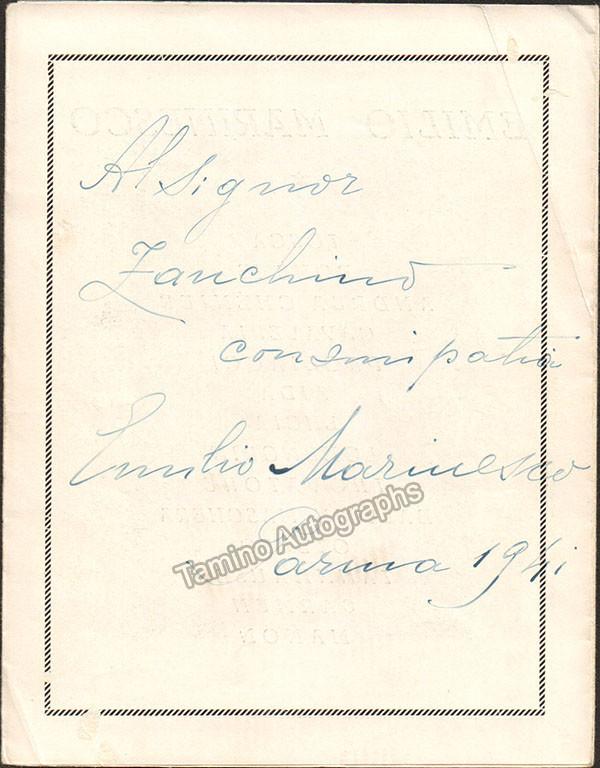 Al Signor
Zanchino
con simpatia
Emilio Marinesco
Parma 1941
Tamino Autographs